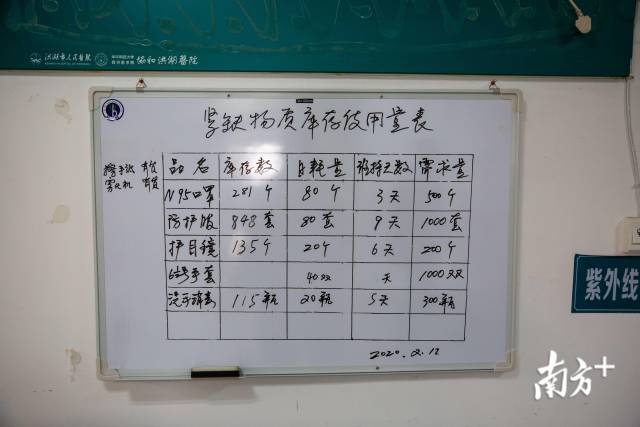 洪湖市人民医院 协和洪湖醫院
紧缺物质库存使用量表
擦手纸 有货
雾化机 有货
品名 库存数 日耗量 维持天数 需求量
N95口罩 281个 80个 3天 500个
防护服 848套 80套 9天 1000套
护目镜 135个 20个 6天 200个
手套 40双 天 1000双
115瓶 20瓶 5天 300瓶
2020.2.12
紫外线
南方+